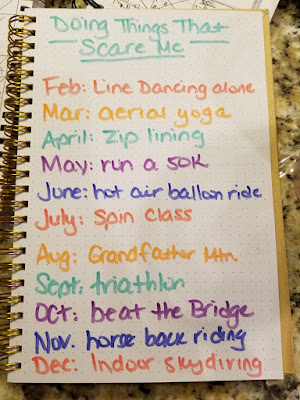 Doing Things That
Scare Me
Feb: Line Dancing alone
Mar: aerial yoga
April: zip lining
May: run a 50K
June: hot air balloon ride
July: Spin class
Aug: Grandfather Mtn.
Sept: triathlon
OCT: beat the Bridge
Nov. horse back riding
Dec: Indoor skydiving